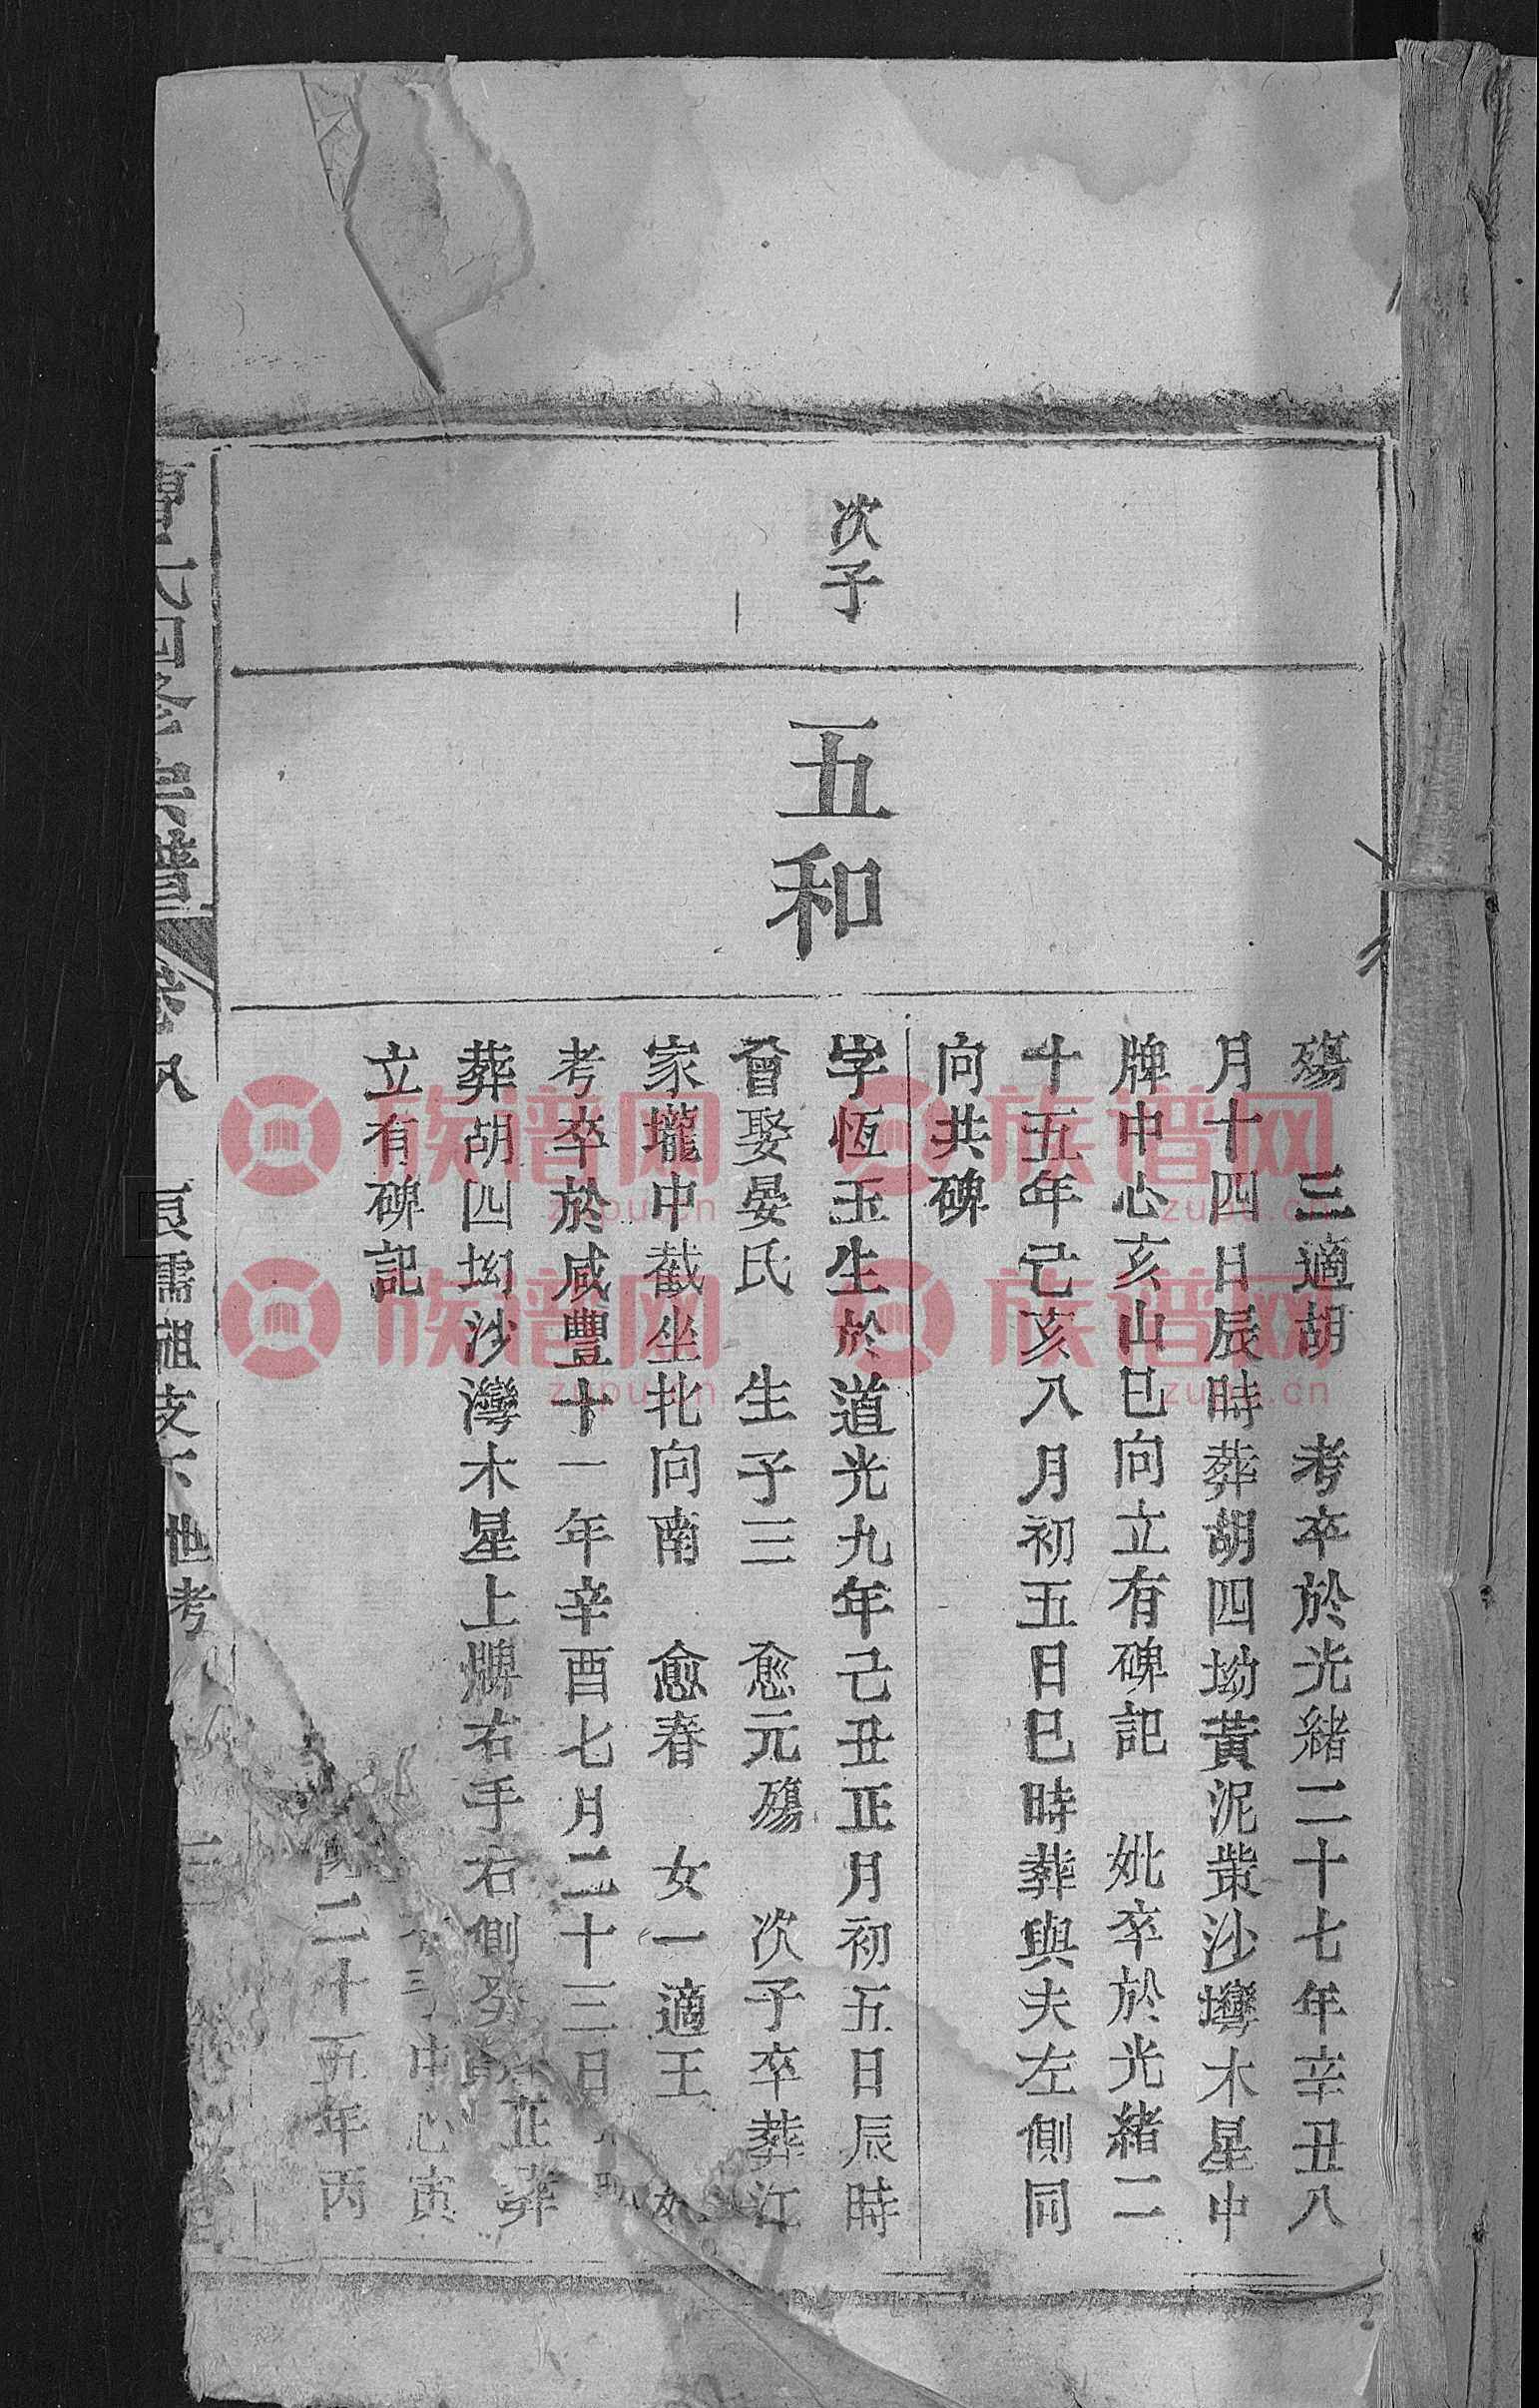 殤　三適胡　考卒於光緒二十七年辛丑八
月十四日辰時葬胡四坳黃泥塝沙壪木星中
牌中心亥山巳向立有碑記　妣卒於光緒二
十五年己亥八月初五日巳時葬與夫左側同
向共碑
次子
五和
字恆玉生於道光九年己丑正月初五日辰時
曾娶晏氏　生子三　愈元殤　次子卒葬江
家壠中截坐北向南　愈春　女一適王
考卒於咸豐十一年辛酉七月二十三日
葬胡四坳沙灣木星上牌右手右側癸
正葬
中心寅
二十五年丙
立有碑記
氏四修宗譜
卷八
良儒祖支下世考
族谱网
zupu.cn
族谱网
zupu.cn
族谱网
zupu.cn
族谱网
zupu.cn